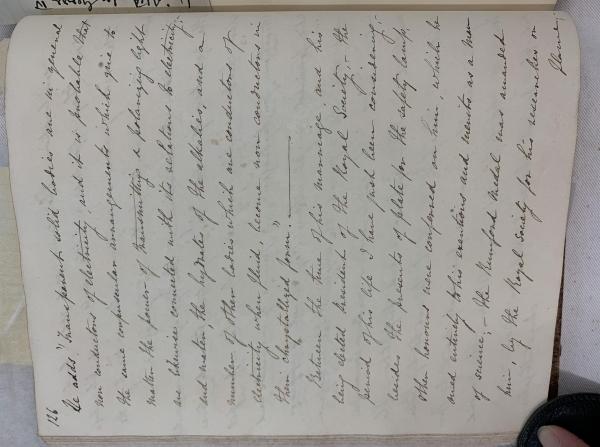 126
He adds "Transparent solid bodies are in general
non conductors of electricity, and it is probable that
the same corpuscular arrangements which give to
matter the power of transmitting & polarizing light
are likewise connected with its relations to electricity;
and water, the hydrates of the alkalies, and a
number of other bodies which are conductors of
electricity when fluid, become non conductors in
their chrystallized form."
Between the time of his marriage and his
being elected President of the Royal Society - the
period of his life I have just been considering;
besides the presents of plate for the safety lamp,
other honours were conferred on him, which he
owed entirely to his exertions and merits as a man
of science. - The Rumford Medal was awarded
him, by the Royal Society for his researches on
flame;